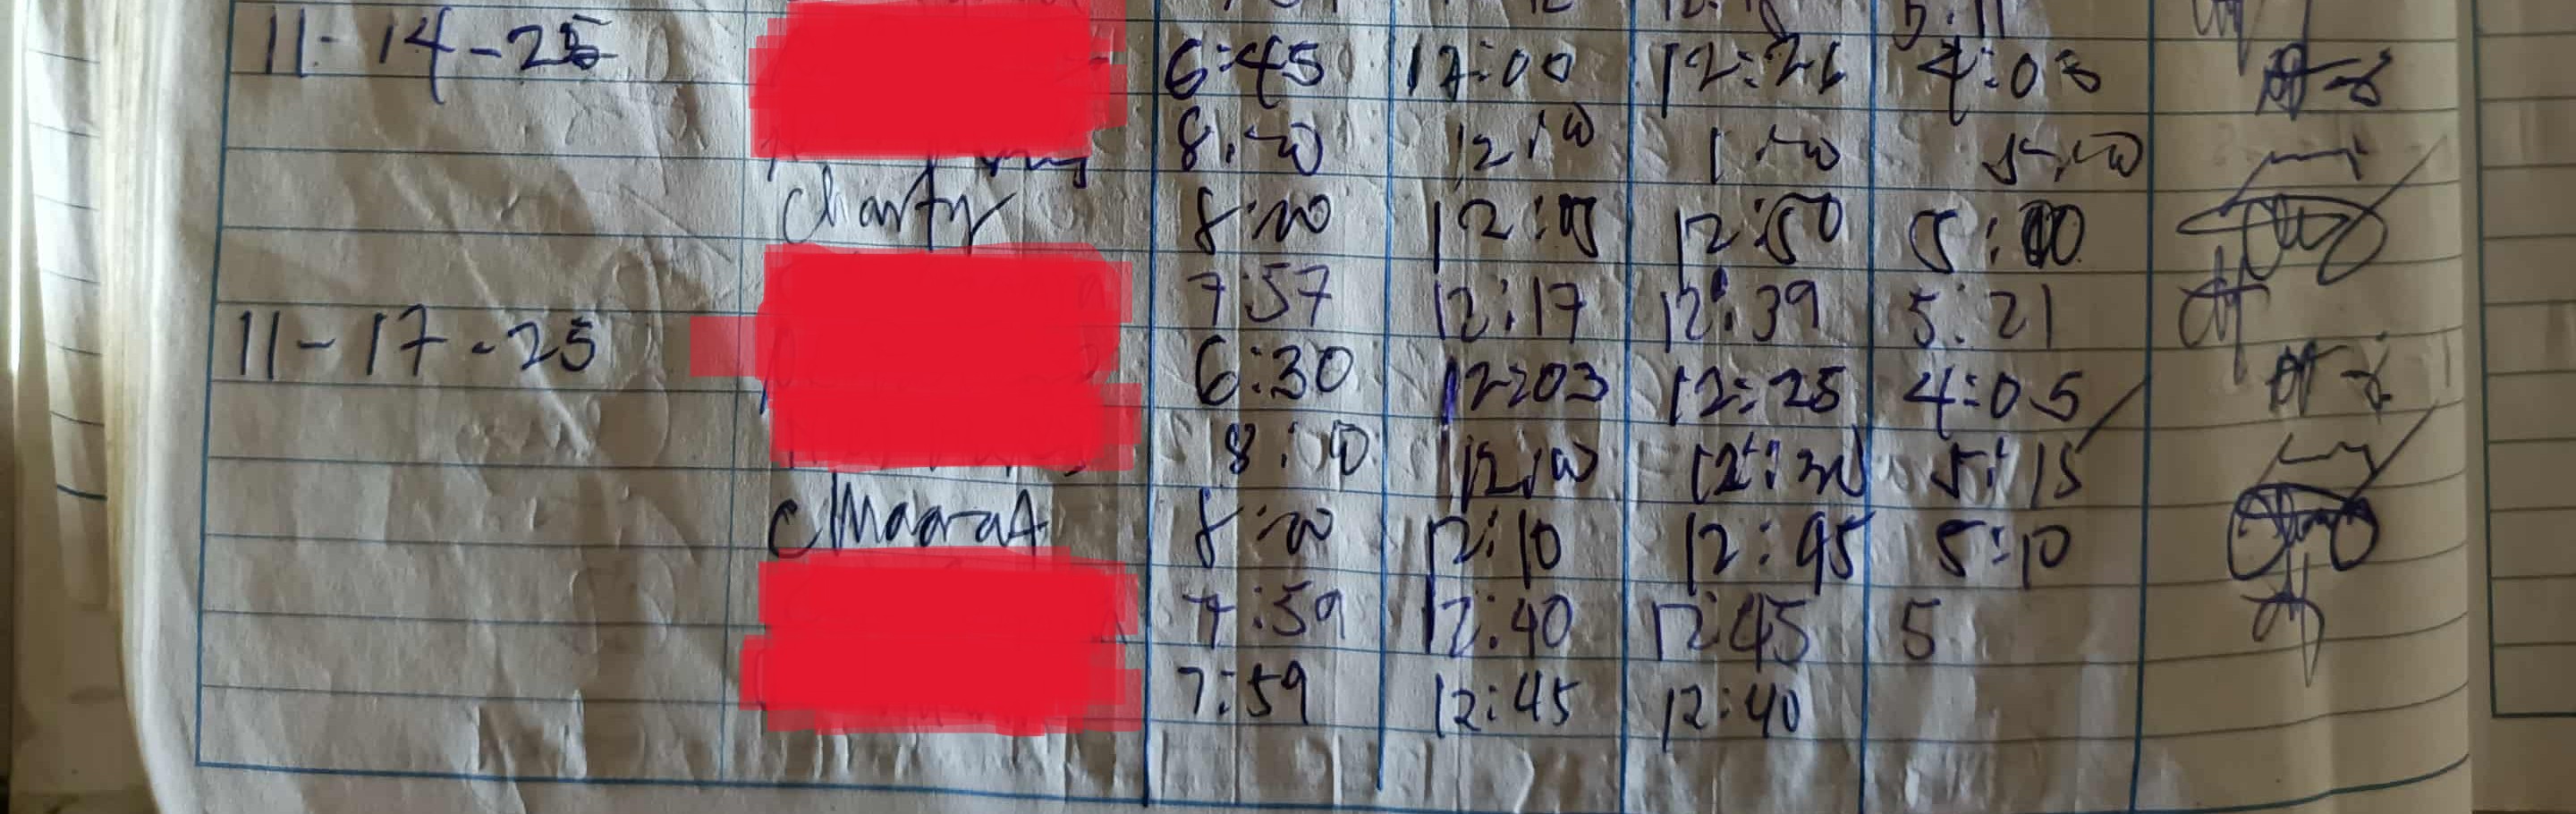 11-14-25 6:45 12:00 12:26 4:03
8:00 12:00 1:00 5:00
Charity 8:00 12:05 12:50 5:00
7:57 12:17 12:39 5:21
11-17-25 6:30 12:03 12:25 4:05
8:00 12:00 12:30 5:15
8:00 12:10 12:45 5:10
7:59 12:40 12:45 5
7:59 12:45 12:40